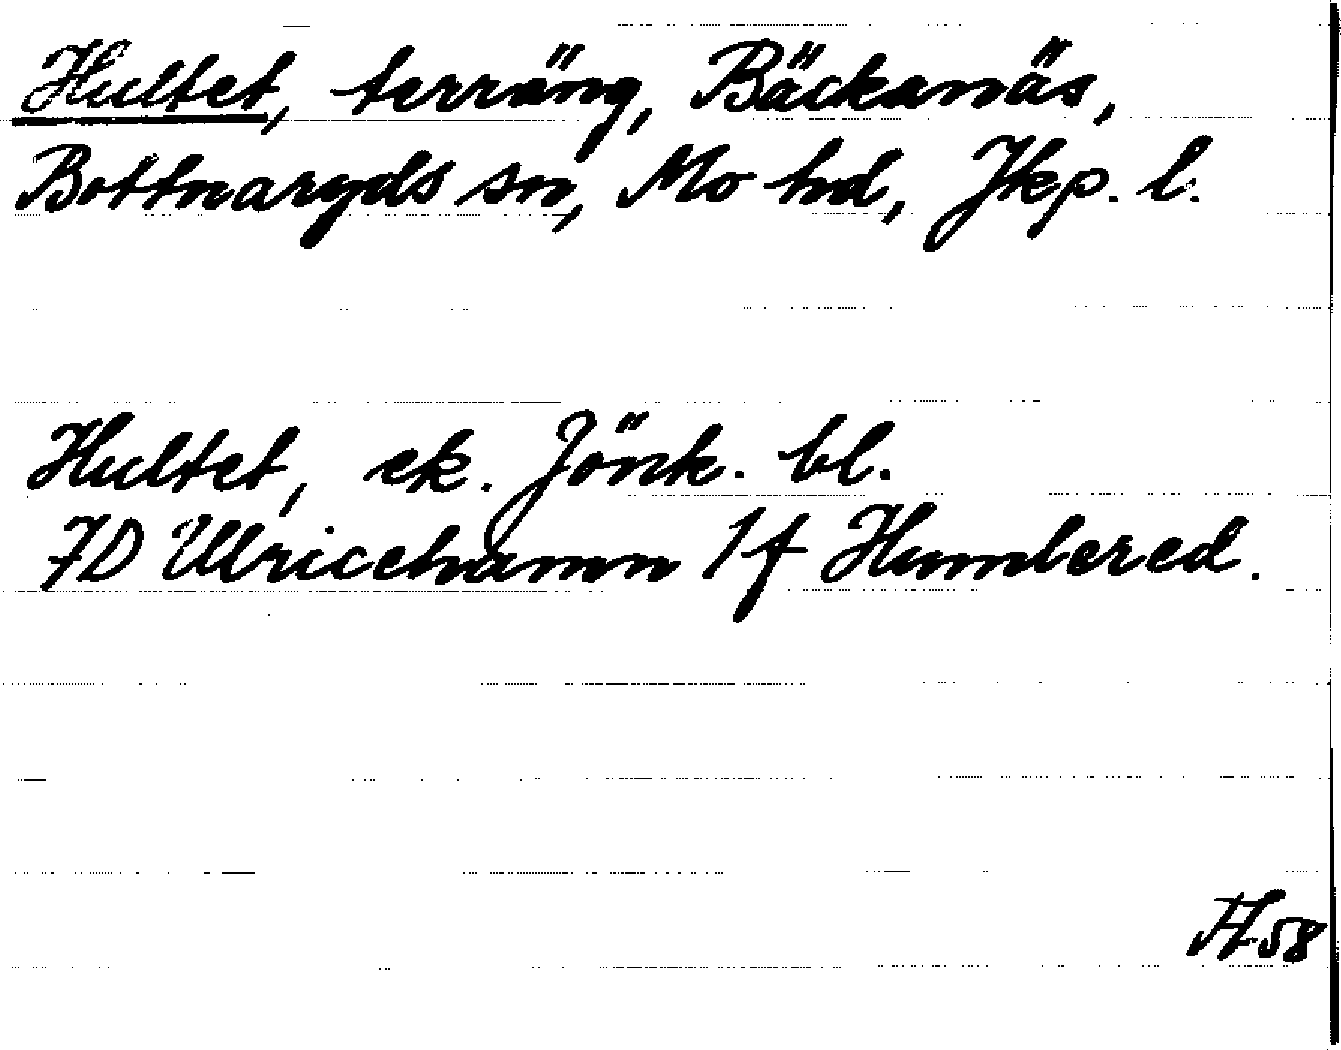 Hultet, terräng, Bäckanäs,
Bottnaryds sn, Mo hd, Jkp. l.
Hultet, ek. Jönk. bl.
7D Ulricehamn 1f Humbered.
58